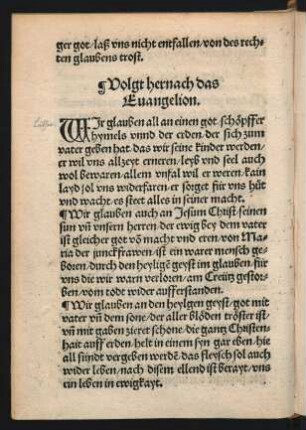 ger got/laß vns nicht entfallen/von des rech-
ten glaubens trost.
¶Volgt hernach das
Euangelion.
WIr glauben all an einen got schöpffer
hymels vnnd der erden/der sich zum
vater geben hat das wir seine kinder werden/
er wil vns allzeyt erneren/leyb vnd seel auch
wol bewaren/allem vnfal wil er weren/kain
layd sol vns widerfaren/er sorget für vns hüt
vnd wacht/es steet alles in seiner macht.
¶Wir glauben auch an Jesum Christ/seinen
sun vñ vnsern herren/der ewig bey dem vater
ist gleicher got võ macht vnd eren/von Ma-
ria der junckfrawen/ist ein warer mensch ge-
boren/durch den heyligẽ geyst im glauben/für
vns die wir warn verloren/am Creütz gestor-
ben/vom todt wider aufferstanden.
¶Wir glauben an den heylgen geyst/got mit
vater vñ dem sone/der aller blöden tröster ist/
vñ mit gaben zieret schone/die gantz Christen-
hait auff erden/helt in einem syn gar eben/hie
all sünd vergeben werdẽ/das fleysch sol auch
wider leben/nach disem ellend ist berayt/vns
ein leben in ewigkayt.